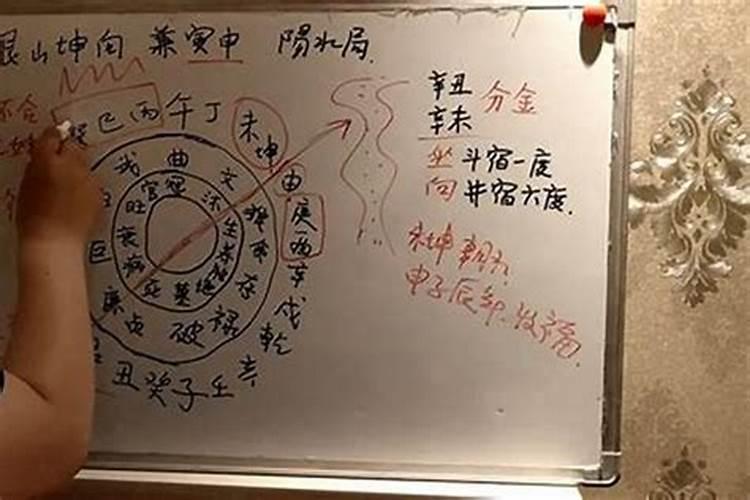 艮山坤向 兼寅申 阳水局
辛丑 分金
辛未
坐斗宿一度
向井宿六度.
未坤朝水
申子辰年发福
巽巳丙午丁
未坤
申
庚酉
辛
戌
乾
亥
壬
子
癸
丑
曲
文
存
禄
破
贞
廉
巨
武
官冠
沐
生
养
墓绝
死
病
衰
旺